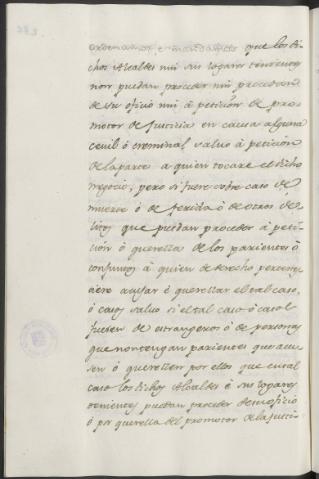 ordenamos é mandamos que los di-
chos Alcaldes nin sus logares tenientes
non puedan proceder nin procedan
de su oficio nin á petición de pro-
motor de Justicia en causa alguna
cevil ó creminal salvo á petición
de la parte á quien tocare el dicho
negocio, pero si fuere sobre caso de
muerte ó de ferida ó de otros de-
litos que puedan proceder á peti-
ción ó querella de los parientes ó
conjuntos á quien de derecho pertenes-
ciere acusar é querellar el tal caso,
ó casos salvo si el tal caso ó casos
fueren de estrangeros ó de personas
que non tengan parientes que acu-
sen ó querellen por ellos que en tal
caso los dichos Alcaldes ó sus logares
tenientes puedan proceder de su oficio
ó por querella del promotor de la justi-